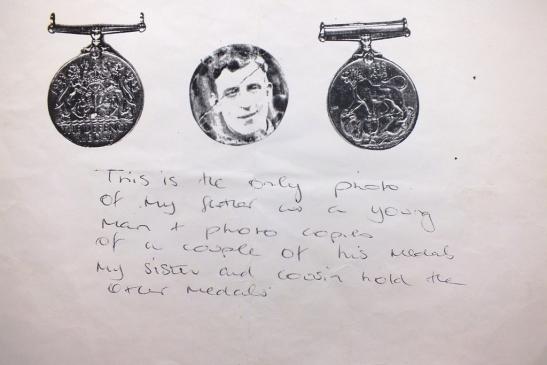 This is the only photo
of my father as a young
man + photo copies
of a couple of his medals
my sister and cousin hold the
other medals